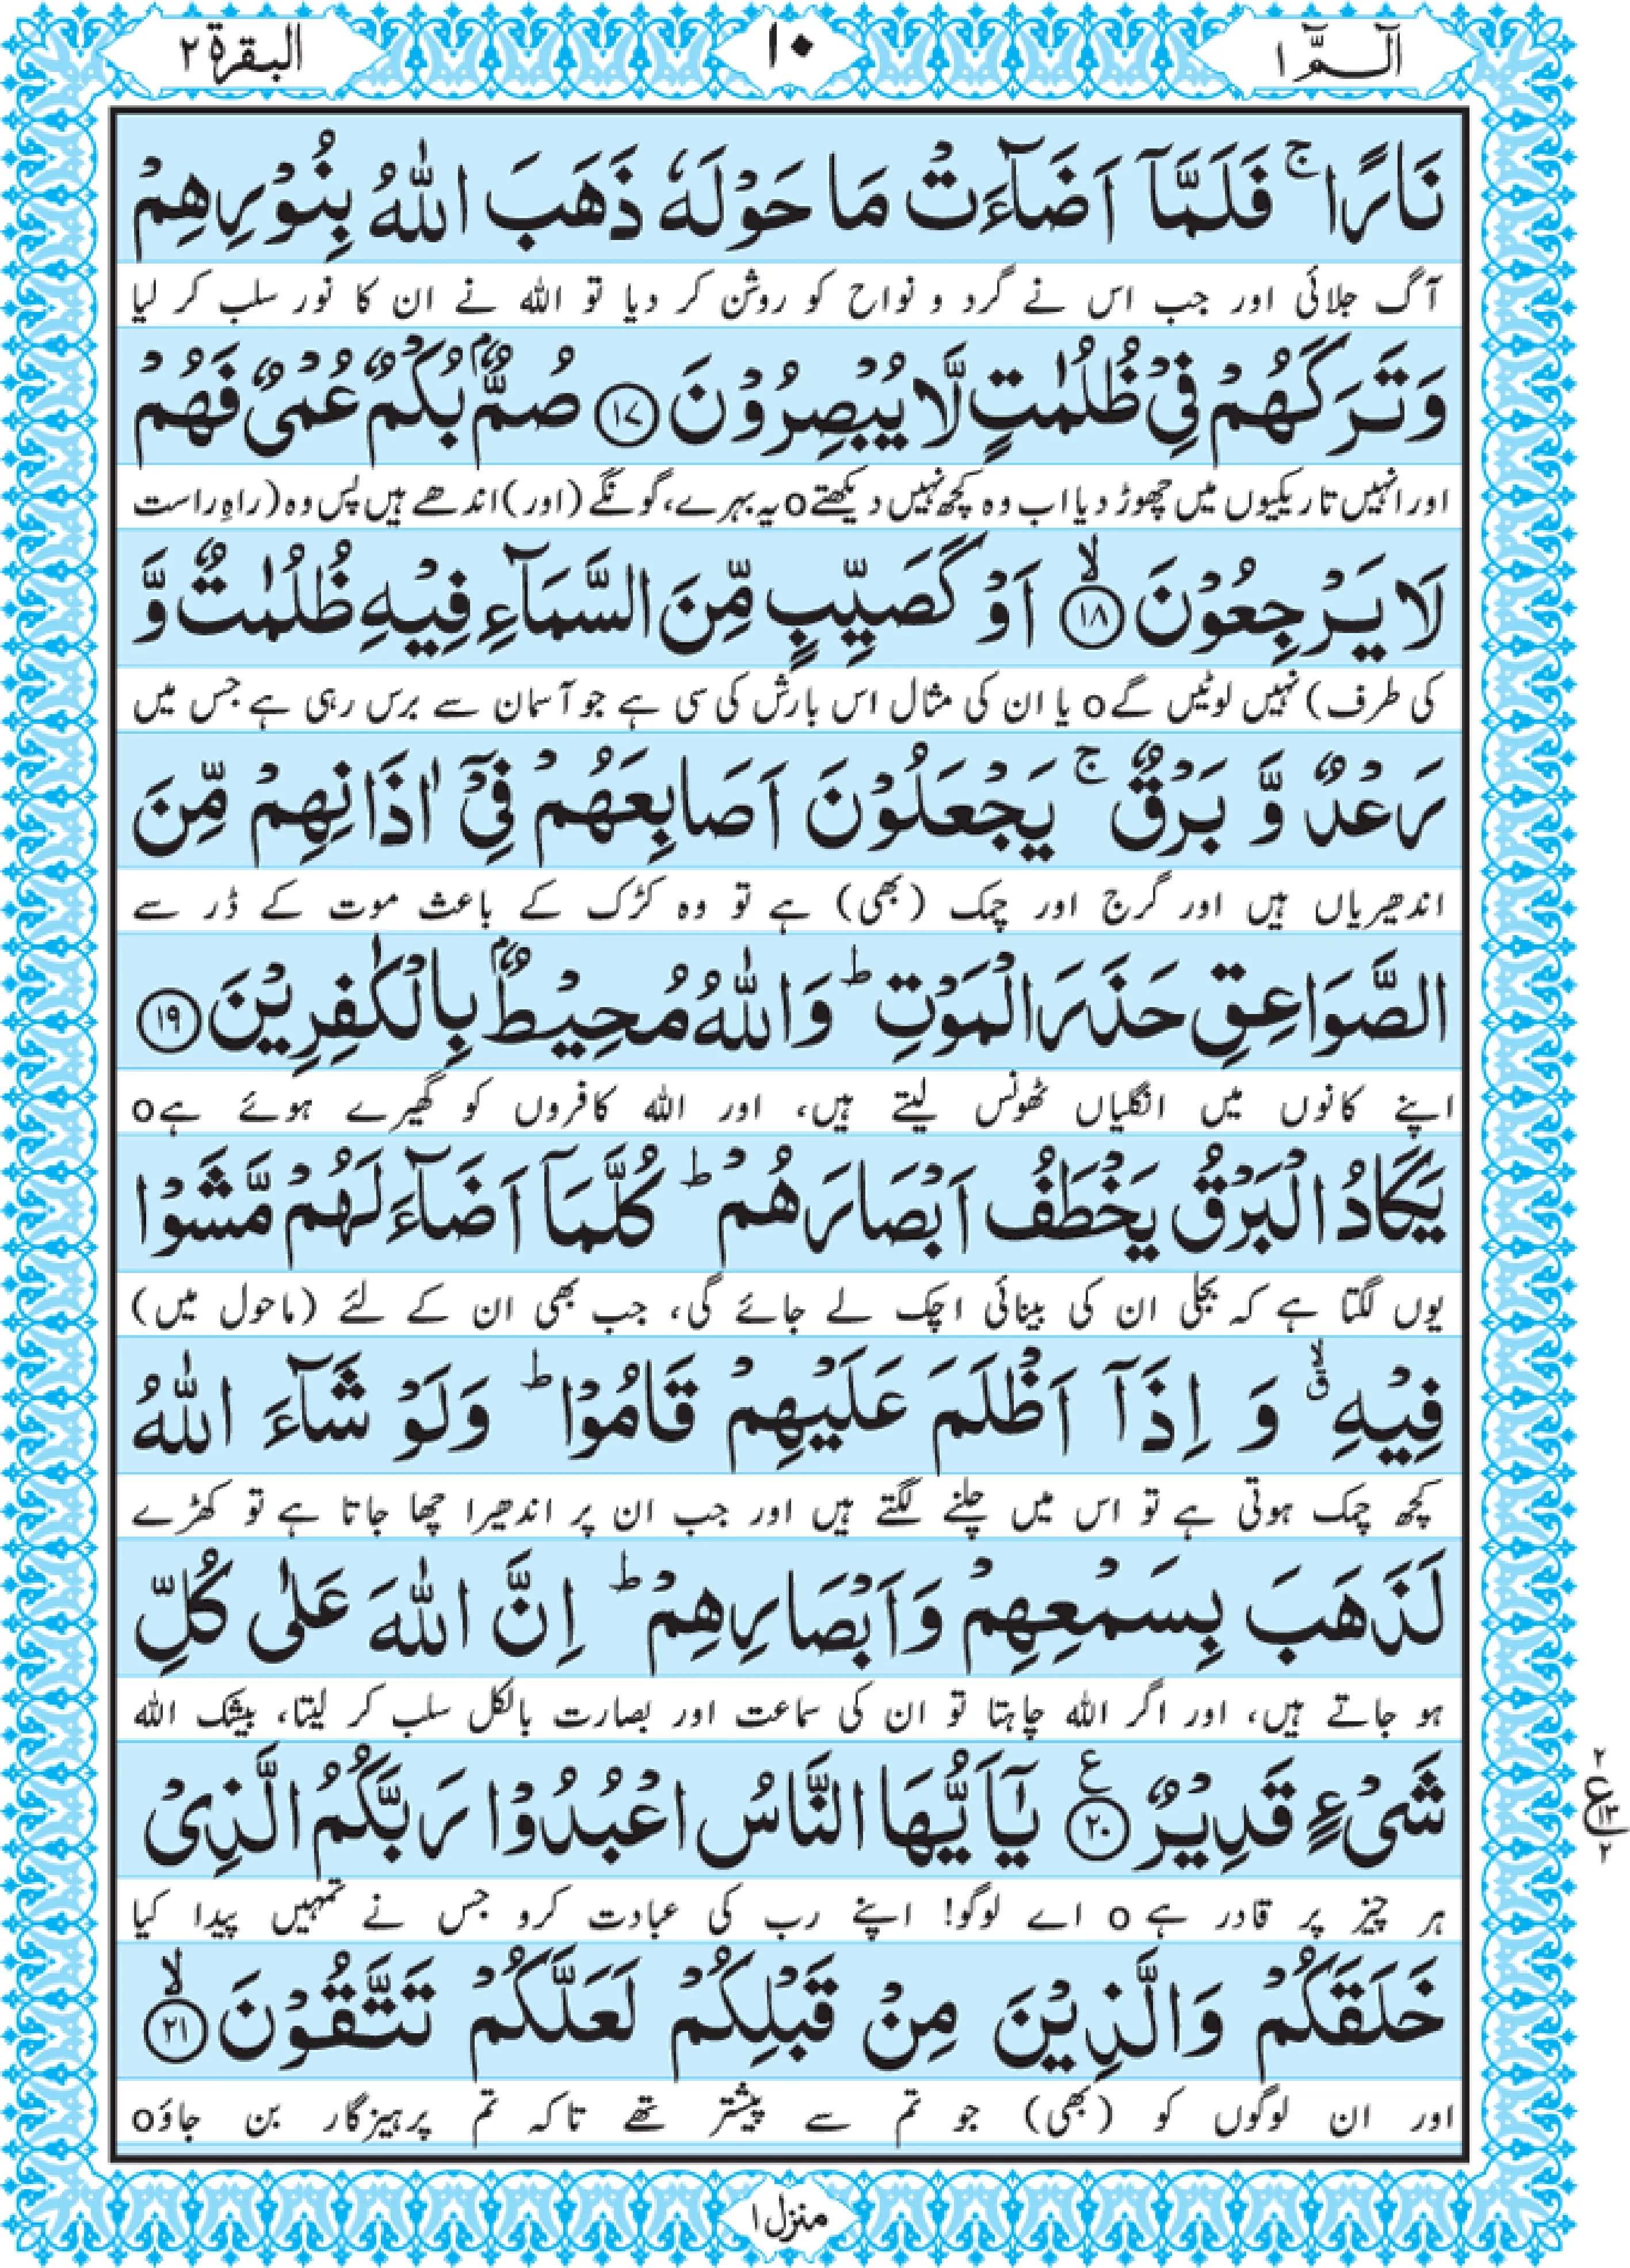 الٓـمّٓ ۱
۱۰
البقرة ۲
نَارًا ۚ فَلَمَّاۤ اَضَآءَتْ مَا حَوْلَهٗ ذَهَبَ اللّٰهُ بِنُوْرِهِمْ
آگ جلائی اور جب اس نے گرد و نواح کو روشن کر دیا تو اللہ نے ان کا نور سلب کر لیا
وَتَرَكَهُمْ فِیْ ظُلُمٰتٍ لَّا یُبْصِرُوْنَ ﴿۱۷﴾ صُمٌّۢ بُكْمٌ عُمْیٌ فَهُمْ
اور انہیں تاریکیوں میں چھوڑ دیا اب وہ کچھ نہیں دیکھتےo یہ بہرے، گونگے (اور) اندھے ہیں پس وہ (راہِ راست
لَا یَرْجِعُوْنَ ﴿۱۸﴾ۙ اَوْ كَصَیِّبٍ مِّنَ السَّمَآءِ فِیْهِ ظُلُمٰتٌ وَّ
کی طرف) نہیں لوٹیں گےo یا ان کی مثال اس بارش کی سی ہے جو آسمان سے برس رہی ہے جس میں
رَعْدٌ وَّ بَرْقٌ ۚ یَجْعَلُوْنَ اَصَابِعَهُمْ فِیْۤ اٰذَانِهِمْ مِّنَ
اندھیریاں ہیں اور گرج اور چمک (بھی) ہے تو وہ کڑک کے باعث موت کے ڈر سے
الصَّوَاعِقِ حَذَرَ الْمَوْتِ ؕ وَاللّٰهُ مُحِیْطٌۢ بِالْكٰفِرِیْنَ ﴿۱۹﴾
اپنے کانوں میں انگلیاں ٹھونس لیتے ہیں، اور اللہ کافروں کو گھیرے ہوئے ہےo
یَكَادُ الْبَرْقُ یَخْطَفُ اَبْصَارَهُمْ ؕ كُلَّمَاۤ اَضَآءَ لَهُمْ مَّشَوْا
یوں لگتا ہے کہ بجلی ان کی بینائی اچک لے جائے گی، جب بھی ان کے لئے (ماحول میں)
فِیْهِ ۙۗ وَ اِذَاۤ اَظْلَمَ عَلَیْهِمْ قَامُوْا ؕ وَلَوْ شَآءَ اللّٰهُ
کچھ چمک ہوتی ہے تو اس میں چلنے لگتے ہیں اور جب ان پر اندھیرا چھا جاتا ہے تو کھڑے
لَذَهَبَ بِسَمْعِهِمْ وَاَبْصَارِهِمْ ؕ اِنَّ اللّٰهَ عَلٰی كُلِّ
ہو جاتے ہیں، اور اگر اللہ چاہتا تو ان کی سماعت اور بصارت بالکل سلب کر لیتا، بیشک اللہ
شَیْءٍ قَدِیْرٌ ﴿۲۰﴾ ع یٰۤاَیُّهَا النَّاسُ اعْبُدُوْا رَبَّكُمُ الَّذِیْ
۲
ع ۱۳
۲
ہر چیز پر قادر ہے o اے لوگو! اپنے رب کی عبادت کرو جس نے تمہیں پیدا کیا
خَلَقَكُمْ وَالَّذِیْنَ مِنْ قَبْلِكُمْ لَعَلَّكُمْ تَتَّقُوْنَ ﴿۲۱﴾ۙ
اور ان لوگوں کو (بھی) جو تم سے پیشتر تھے تاکہ تم پرہیزگار بن جاؤo
منزل ۱